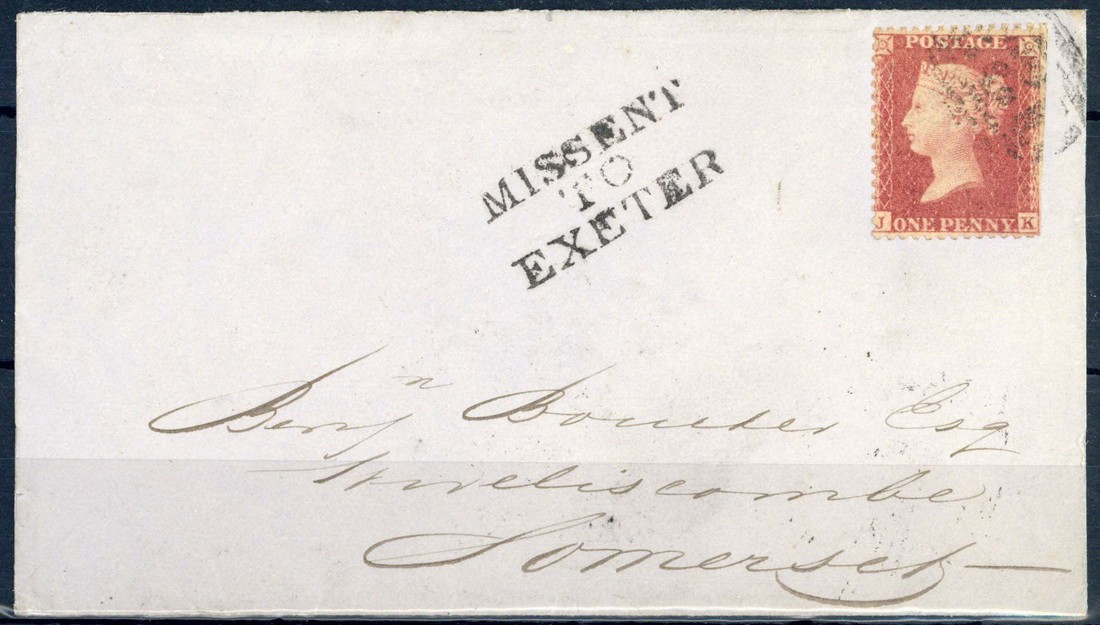 POSTAGE
ONE PENNY
J K
MISSENT
TO
EXETER
Benjn Boucher Esq
Wiveliscombe
Somerset